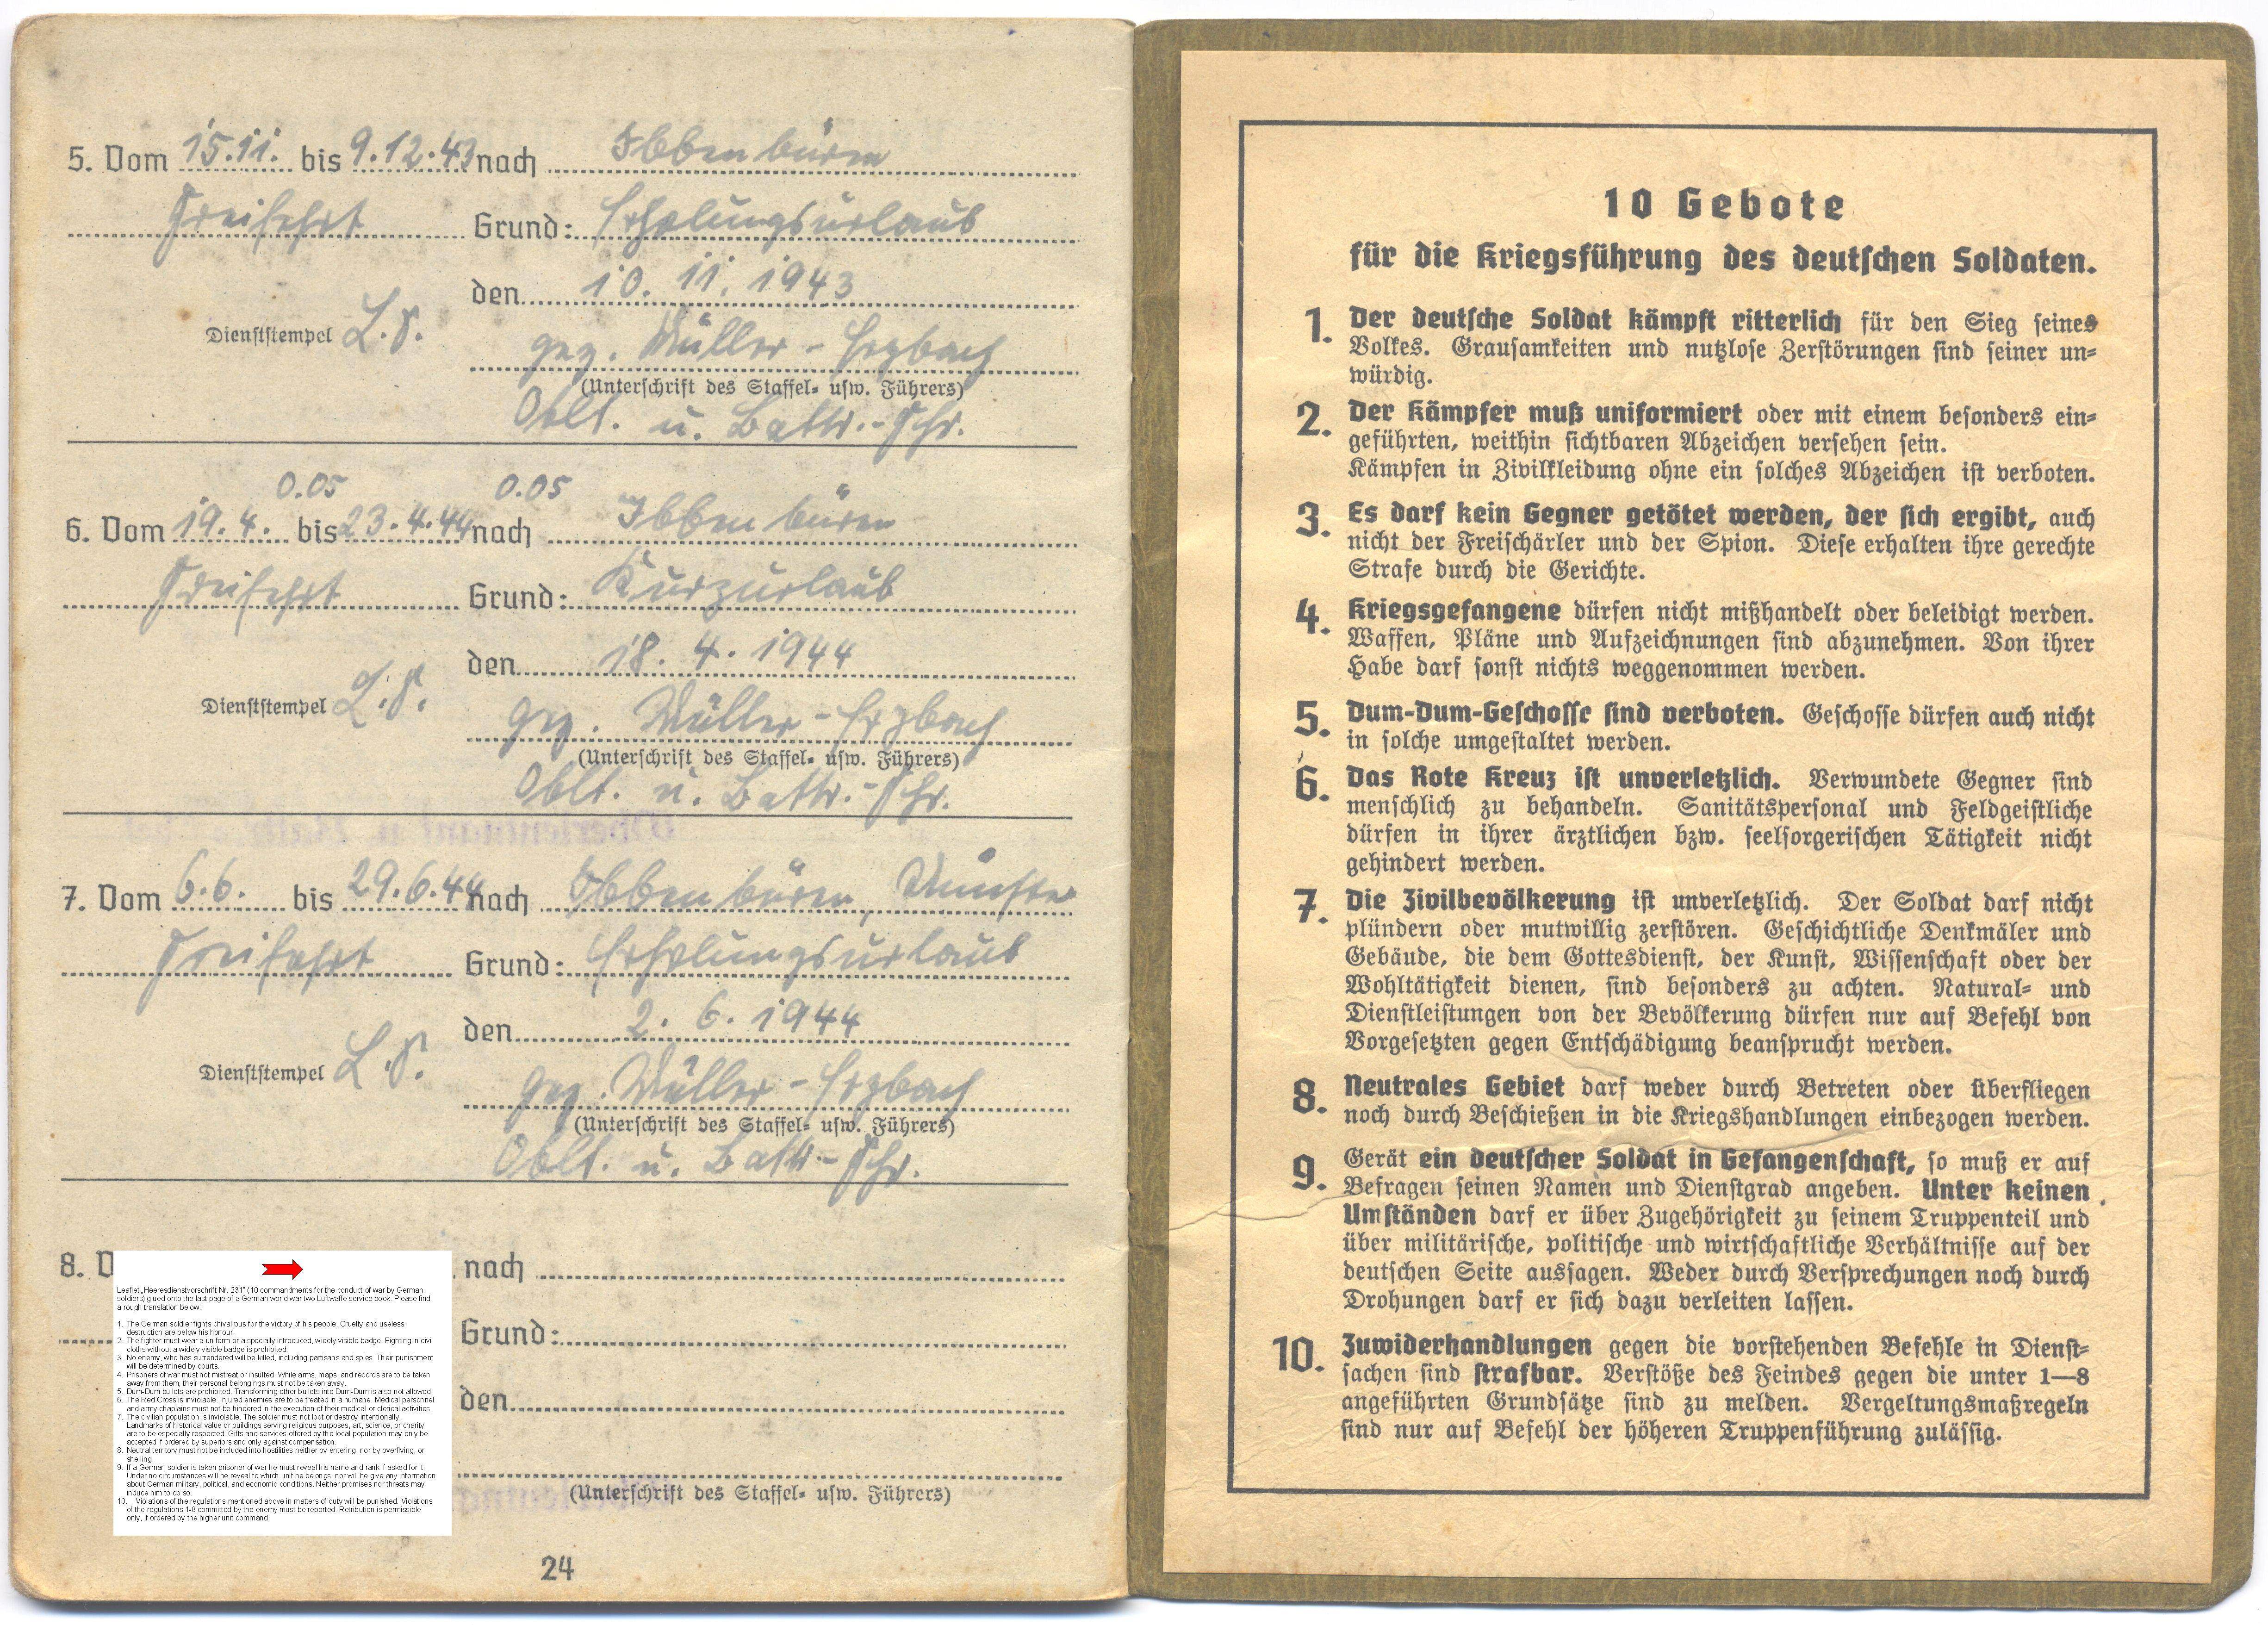 5. Vom 15.11. bis 9.12.43 nach Ibbenbüren
Freifahrt Grund: Erholungsurlaub
den 10. 11. 1943
Dienststempel L.S. gez. Müller-Erzbach
(Unterschrift des Staffel- usw. Führers)
Oblt. u. Battr.-Fhr.
0.05 0.05
6. Vom 19.4. bis 23.4.44 nach Ibbenbüren
Freifahrt Grund: Kurzurlaub
den 18. 4. 1944
Dienststempel L.S. gez. Müller-Erzbach
(Unterschrift des Staffel- usw. Führers)
Oblt. u. Battr.-Fhr.
7. Vom 6.6. bis 29.6.44 nach Ibbenbüren, Münster
Freifahrt Grund: Erholungsurlaub
den 2. 6. 1944
Dienststempel L.S. gez. Müller-Erzbach
(Unterschrift des Staffel- usw. Führers)
Oblt. u. Battr.-Fhr.
8. nach
Grund:
den
(Unterschrift des Staffel- usw. Führers)
24
Leaflet „Heeresdienstvorschrift Nr. 231" (10 commandments for the conduct of war by German
soldiers) glued onto the last page of a German world war two Luftwaffe service book. Please find
a rough translation below:
1. The German soldier fights chivalrous for the victory of his people. Cruelty and useless
destruction are below his honour.
2. The fighter must wear a uniform or a specially introduced, widely visible badge. Fighting in civil
cloths without a widely visible badge is prohibited.
3. No enemy, who has surrendered will be killed, including partisans and spies. Their punishment
will be determined by courts.
4. Prisoners of war must not mistreat or insulted. While arms, maps, and records are to be taken
away from them, their personal belongings must not be taken away.
5. Dum-Dum bullets are prohibited. Transforming other bullets into Dum-Dum is also not allowed.
6. The Red Cross is inviolable. Injured enemies are to be treated in a humane. Medical personnel
and army chaplains must not be hindered in the execution of their medical or clerical activities.
7. The civilian population is inviolable. The soldier must not loot or destroy intentionally.
Landmarks of historical value or buildings serving religious purposes, art, science, or charity
are to be especially respected. Gifts and services offered by the local population may only be
accepted if ordered by superiors and only against compensation.
8. Neutral territory must not be included into hostilities neither by entering, nor by overflying, or
shelling.
9. If a German soldier is taken prisoner of war he must reveal his name and rank if asked for it.
Under no circumstances will he reveal to which unit he belongs, nor will he give any information
about German military, political, and economic conditions. Neither promises nor threats may
induce him to do so.
10. Violations of the regulations mentioned above in matters of duty will be punished. Violations
of the regulations 1-8 committed by the enemy must be reported. Retribution is permissible
only, if ordered by the higher unit command.
10 Gebote
für die Kriegsführung des deutschen Soldaten.
1. Der deutsche Soldat kämpft ritterlich für den Sieg seines
Volkes. Grausamkeiten und nutzlose Zerstörungen sind seiner un-
würdig.
2. Der Kämpfer muß uniformiert oder mit einem besonders ein-
geführten, weithin sichtbaren Abzeichen versehen sein.
Kämpfen in Zivilkleidung ohne ein solches Abzeichen ist verboten.
3. Es darf kein Gegner getötet werden, der sich ergibt, auch
nicht der Freischärler und der Spion. Diese erhalten ihre gerechte
Strafe durch die Gerichte.
4. Kriegsgefangene dürfen nicht mißhandelt oder beleidigt werden.
Waffen, Pläne und Aufzeichnungen sind abzunehmen. Von ihrer
Habe darf sonst nichts weggenommen werden.
5. Dum-Dum-Geschosse sind verboten. Geschosse dürfen auch nicht
in solche umgestaltet werden.
6. Das Rote Kreuz ist unverletzlich. Verwundete Gegner sind
menschlich zu behandeln. Sanitätspersonal und Feldgeistliche
dürfen in ihrer ärztlichen bzw. seelsorgerischen Tätigkeit nicht
gehindert werden.
7. Die Zivilbevölkerung ist unverletzlich. Der Soldat darf nicht
plündern oder mutwillig zerstören. Geschichtliche Denkmäler und
Gebäude, die dem Gottesdienst, der Kunst, Wissenschaft oder der
Wohltätigkeit dienen, sind besonders zu achten. Natural- und
Dienstleistungen von der Bevölkerung dürfen nur auf Befehl von
Vorgesetzten gegen Entschädigung beansprucht werden.
8. Neutrales Gebiet darf weder durch Betreten oder Überfliegen
noch durch Beschießen in die Kriegshandlungen einbezogen werden.
9. Gerät ein deutscher Soldat in Gefangenschaft, so muß er auf
Befragen seinen Namen und Dienstgrad angeben. Unter keinen
Umständen darf er über Zugehörigkeit zu seinem Truppenteil und
über militärische, politische und wirtschaftliche Verhältnisse auf der
deutschen Seite aussagen. Weder durch Versprechungen noch durch
Drohungen darf er sich dazu verleiten lassen.
10. Zuwiderhandlungen gegen die vorstehenden Befehle in Dienst-
sachen sind strafbar. Verstöße des Feindes gegen die unter 1—8
angeführten Grundsätze sind zu melden. Vergeltungsmaßregeln
sind nur auf Befehl der höheren Truppenführung zulässig.